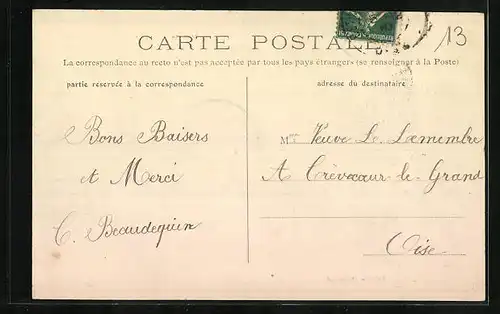 13
CARTE POSTALE
La correspondance au recto n'est pas acceptée par tous les pays étrangers (se renseigner à la Poste)
partie réservée à la correspondance
adresse du destinataire
Bons Baisers
et Merci
C. Beaudequin
Mme Veuve Le
A Crèvecœur-le-Grand
Oise